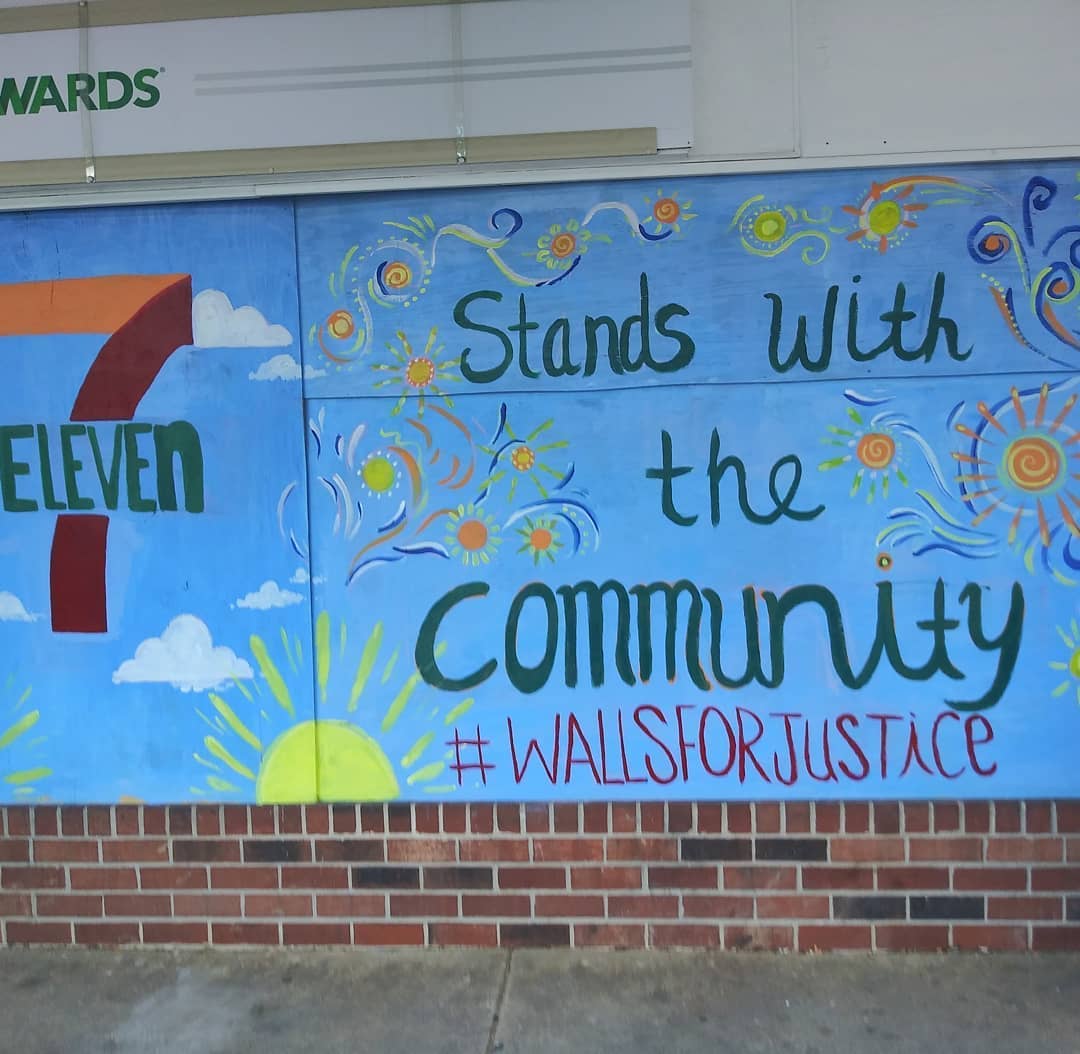 WARDS
7
ELEVEn
Stands With
the
Community
#WALLSFORJUSTiCe